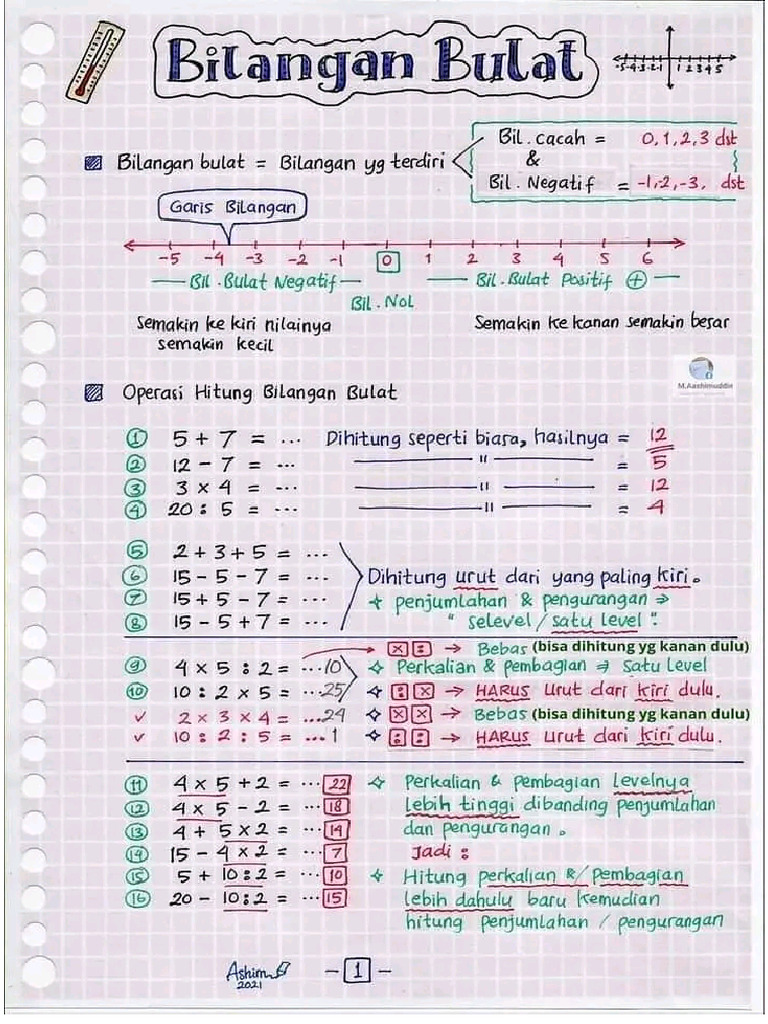 Bilangan Bulat
-5-4-3-2-1 1 2 3 4 5
Bilangan bulat = Bilangan yg terdiri
Bil. cacah = 0, 1, 2, 3 dst
&
Bil. Negatif = -1,-2,-3, dst
Garis Bilangan
-5 -4 -3 -2 -1 0 1 2 3 4 5 6
Bil. Bulat Negatif
Bil. Nol
Bil. Bulat Positif +
Semakin ke kiri nilainya
semakin kecil
Semakin ke kanan semakin besar
M.Aashimuddin
Operasi Hitung Bilangan Bulat
1 5 + 7 = ... Dihitung seperti biara, hasilnya = 12
2 12 - 7 = ... " = 5
3 3 x 4 = ... " = 12
4 20 : 5 = ... " = 4
5 2 + 3 + 5 = ...
6 15 - 5 - 7 = ...
7 15 + 5 - 7 = ...
8 15 - 5 + 7 = ...
Dihitung urut dari yang paling kiri.
+ penjumlahan & pengurangan ⇒
" selevel / satu level ".
x : → Bebas (bisa dihitung yg kanan dulu)
9 4 x 5 : 2 = ...10 Perkalian & pembagian ⇒ satu Level
10 10 : 2 x 5 = ...25 : x → HARUS urut dari kiri dulu.
✓ 2 x 3 x 4 = ...24 x x → Bebas (bisa dihitung yg kanan dulu)
✓ 10 : 2 : 5 = ...1 : : → HARUS urut dari kiri dulu.
11 4 x 5 + 2 = ...22
12 4 x 5 - 2 = ...18
13 4 + 5 x 2 = ...14
14 15 - 4 x 2 = ...7
15 5 + 10 : 2 = ...10
16 20 - 10 : 2 = ...15
Perkalian & Pembagian Levelnya
lebih tinggi dibanding penjumlahan
dan pengurangan.
Jadi :
Hitung perkalian &/ pembagian
lebih dahulu baru kemudian
hitung penjumlahan / pengurangan
Ashim
2021
- 1 -